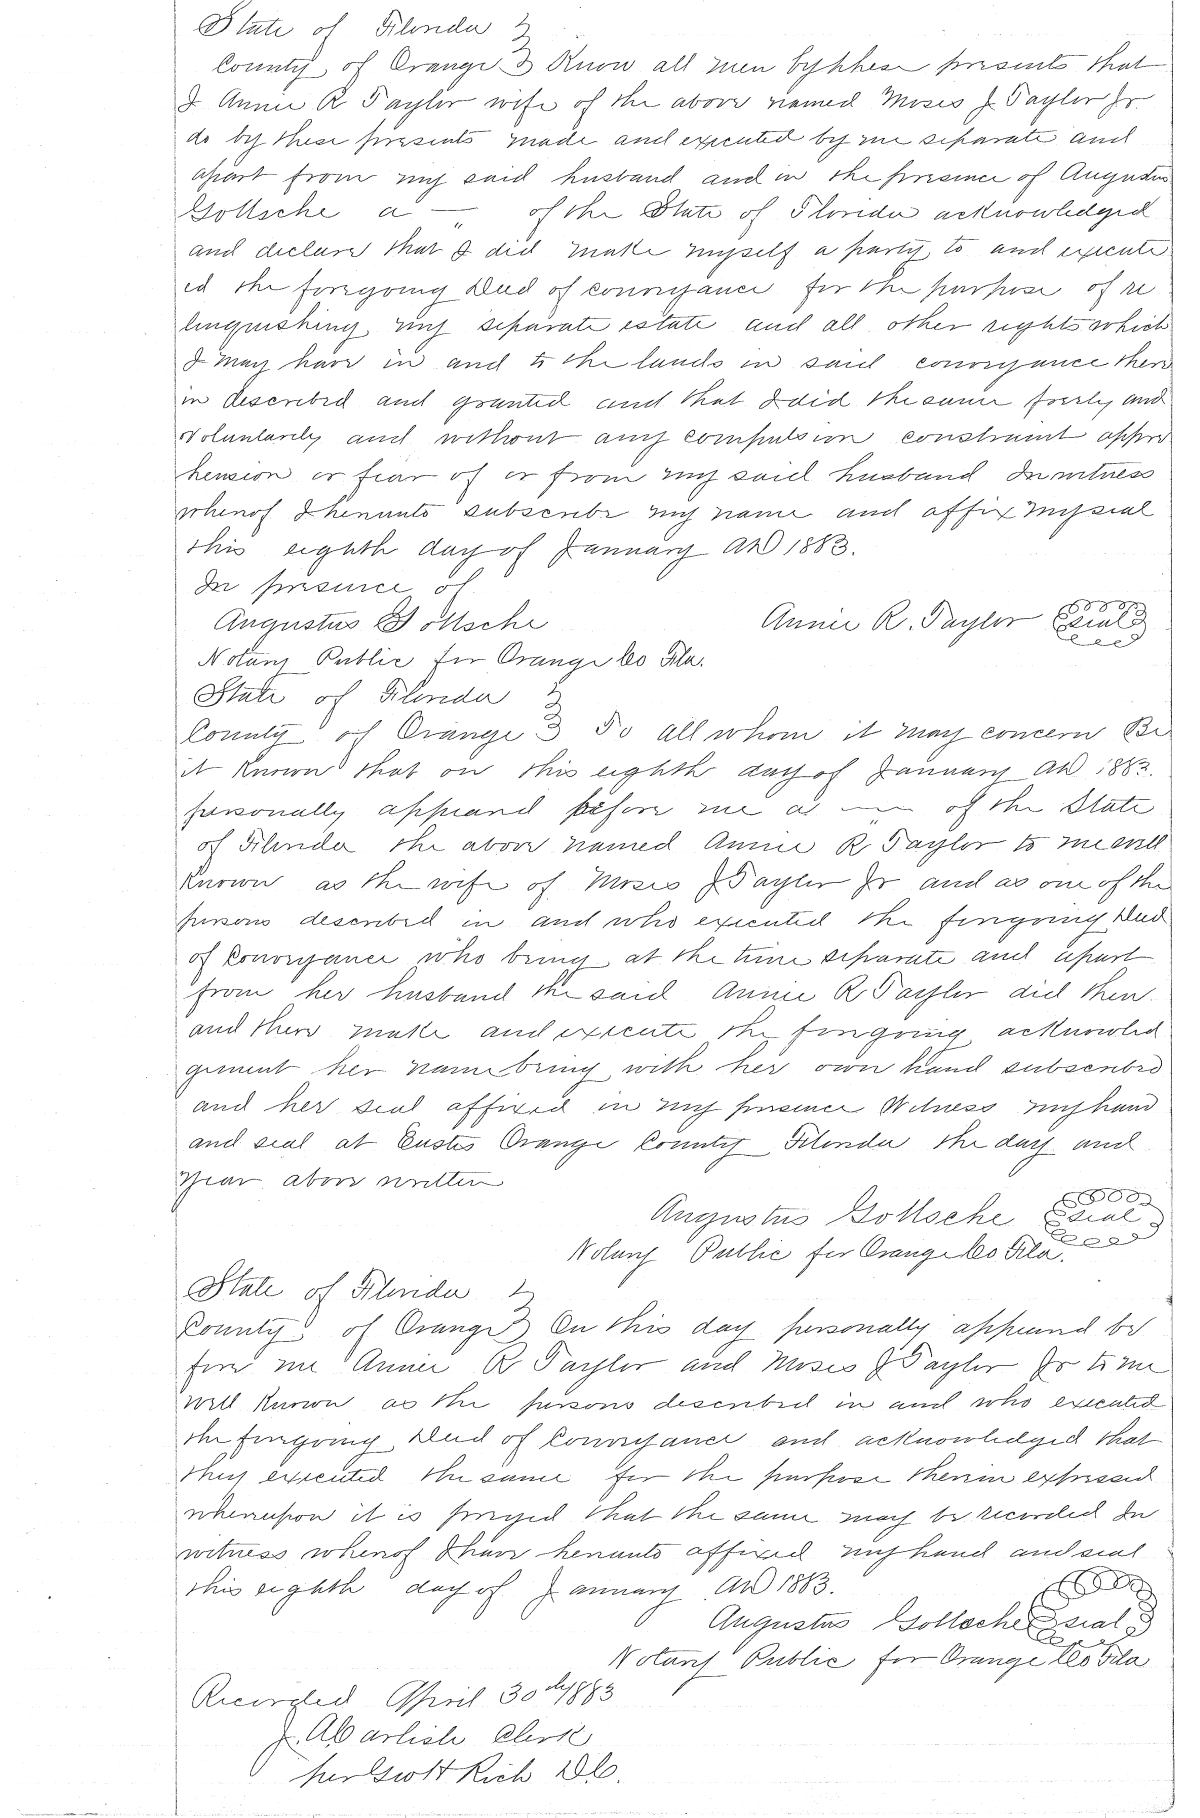 State of Florida }
County of Orange } Know all men by these presents that
I Annie R Taylor wife of the above named Moses J Taylor Jr
do by these presents made and executed by me separate and
apart from my said husband and in the presence of Augustus
Gottsche a — " of the State of Florida acknowledged
and declare that I did make myself a party to and execute
ed the foregoing Deed of conveyance for the purpose of re
linquishing my separate estate and all other rights which
I may have in and to the lands in said conveyance there
in described and granted and that I did the same freely and
Voluntarily and without any compulsion constraint appre
hension or fear of or from my said husband In witness
whereof I hereunto subscribe my name and affix my seal
this eighth day of January AD 1883.
In presence of
Augustus Gottsche Annie R. Taylor (seal)
Notary Public for Orange Co Fla.
State of Florida }
County of Orange } To all whom it may concern Be
it Known that on this eighth day of January AD 1883.
personally appeared before me a — " — of the State
of Florida the above named Annie R Taylor to me well
Known as the wife of Moses J Taylor Jr and as one of the
persons described in and who executed the foregoing Deed
of Conveyance who being at the time separate and apart
from her husband the said Annie R Taylor did then
and there make and execute the foregoing acknowled
gement her name being with her own hand subscribed
and her seal affixed in my presence Witness my hand
and seal at Eustis Orange County Florida the day and
Year above written
Augustus Gottsche (seal)
Notary Public for Orange Co Fla.
State of Florida }
County of Orange } On this day personally appeared be
fore me Annie R Taylor and Moses J Taylor Jr to me
well Known as the persons described in and who executed
the foregoing Deed of Conveyance and acknowledged that
they executed the same for the purpose therein expressed
whereupon it is prayed that the same may be recorded In
witness whereof I have hereunto affixed my hand and seal
this eighth day of January AD 1883.
Augustus Gottsche (seal)
Notary Public for Orange Co Fla
Recorded April 30th 1883
J. A Carlisle Clerk
per Scott Rich D C.